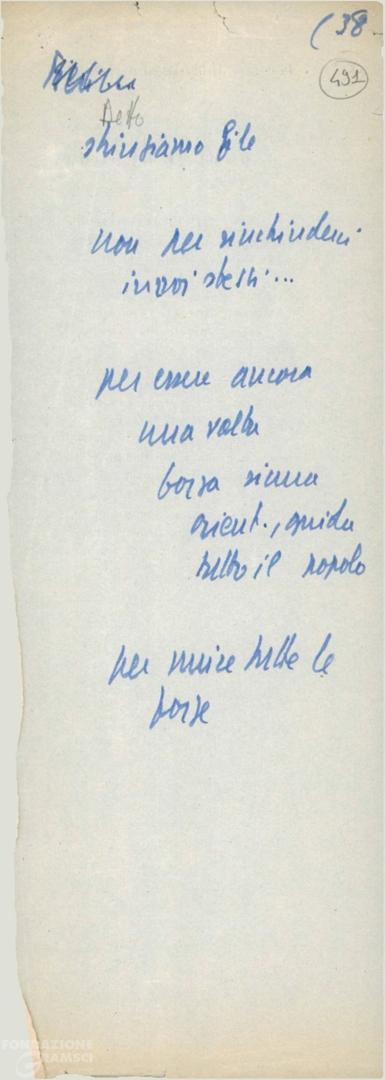 (38
491
Detto
stringiamo file
non per rinchiuderci
in noi stessi...
per essere ancora
una volta
forza sicura
orient., guida
tutto il popolo
per unire tutte le
forze
FONDAZIONE
GRAMSCI